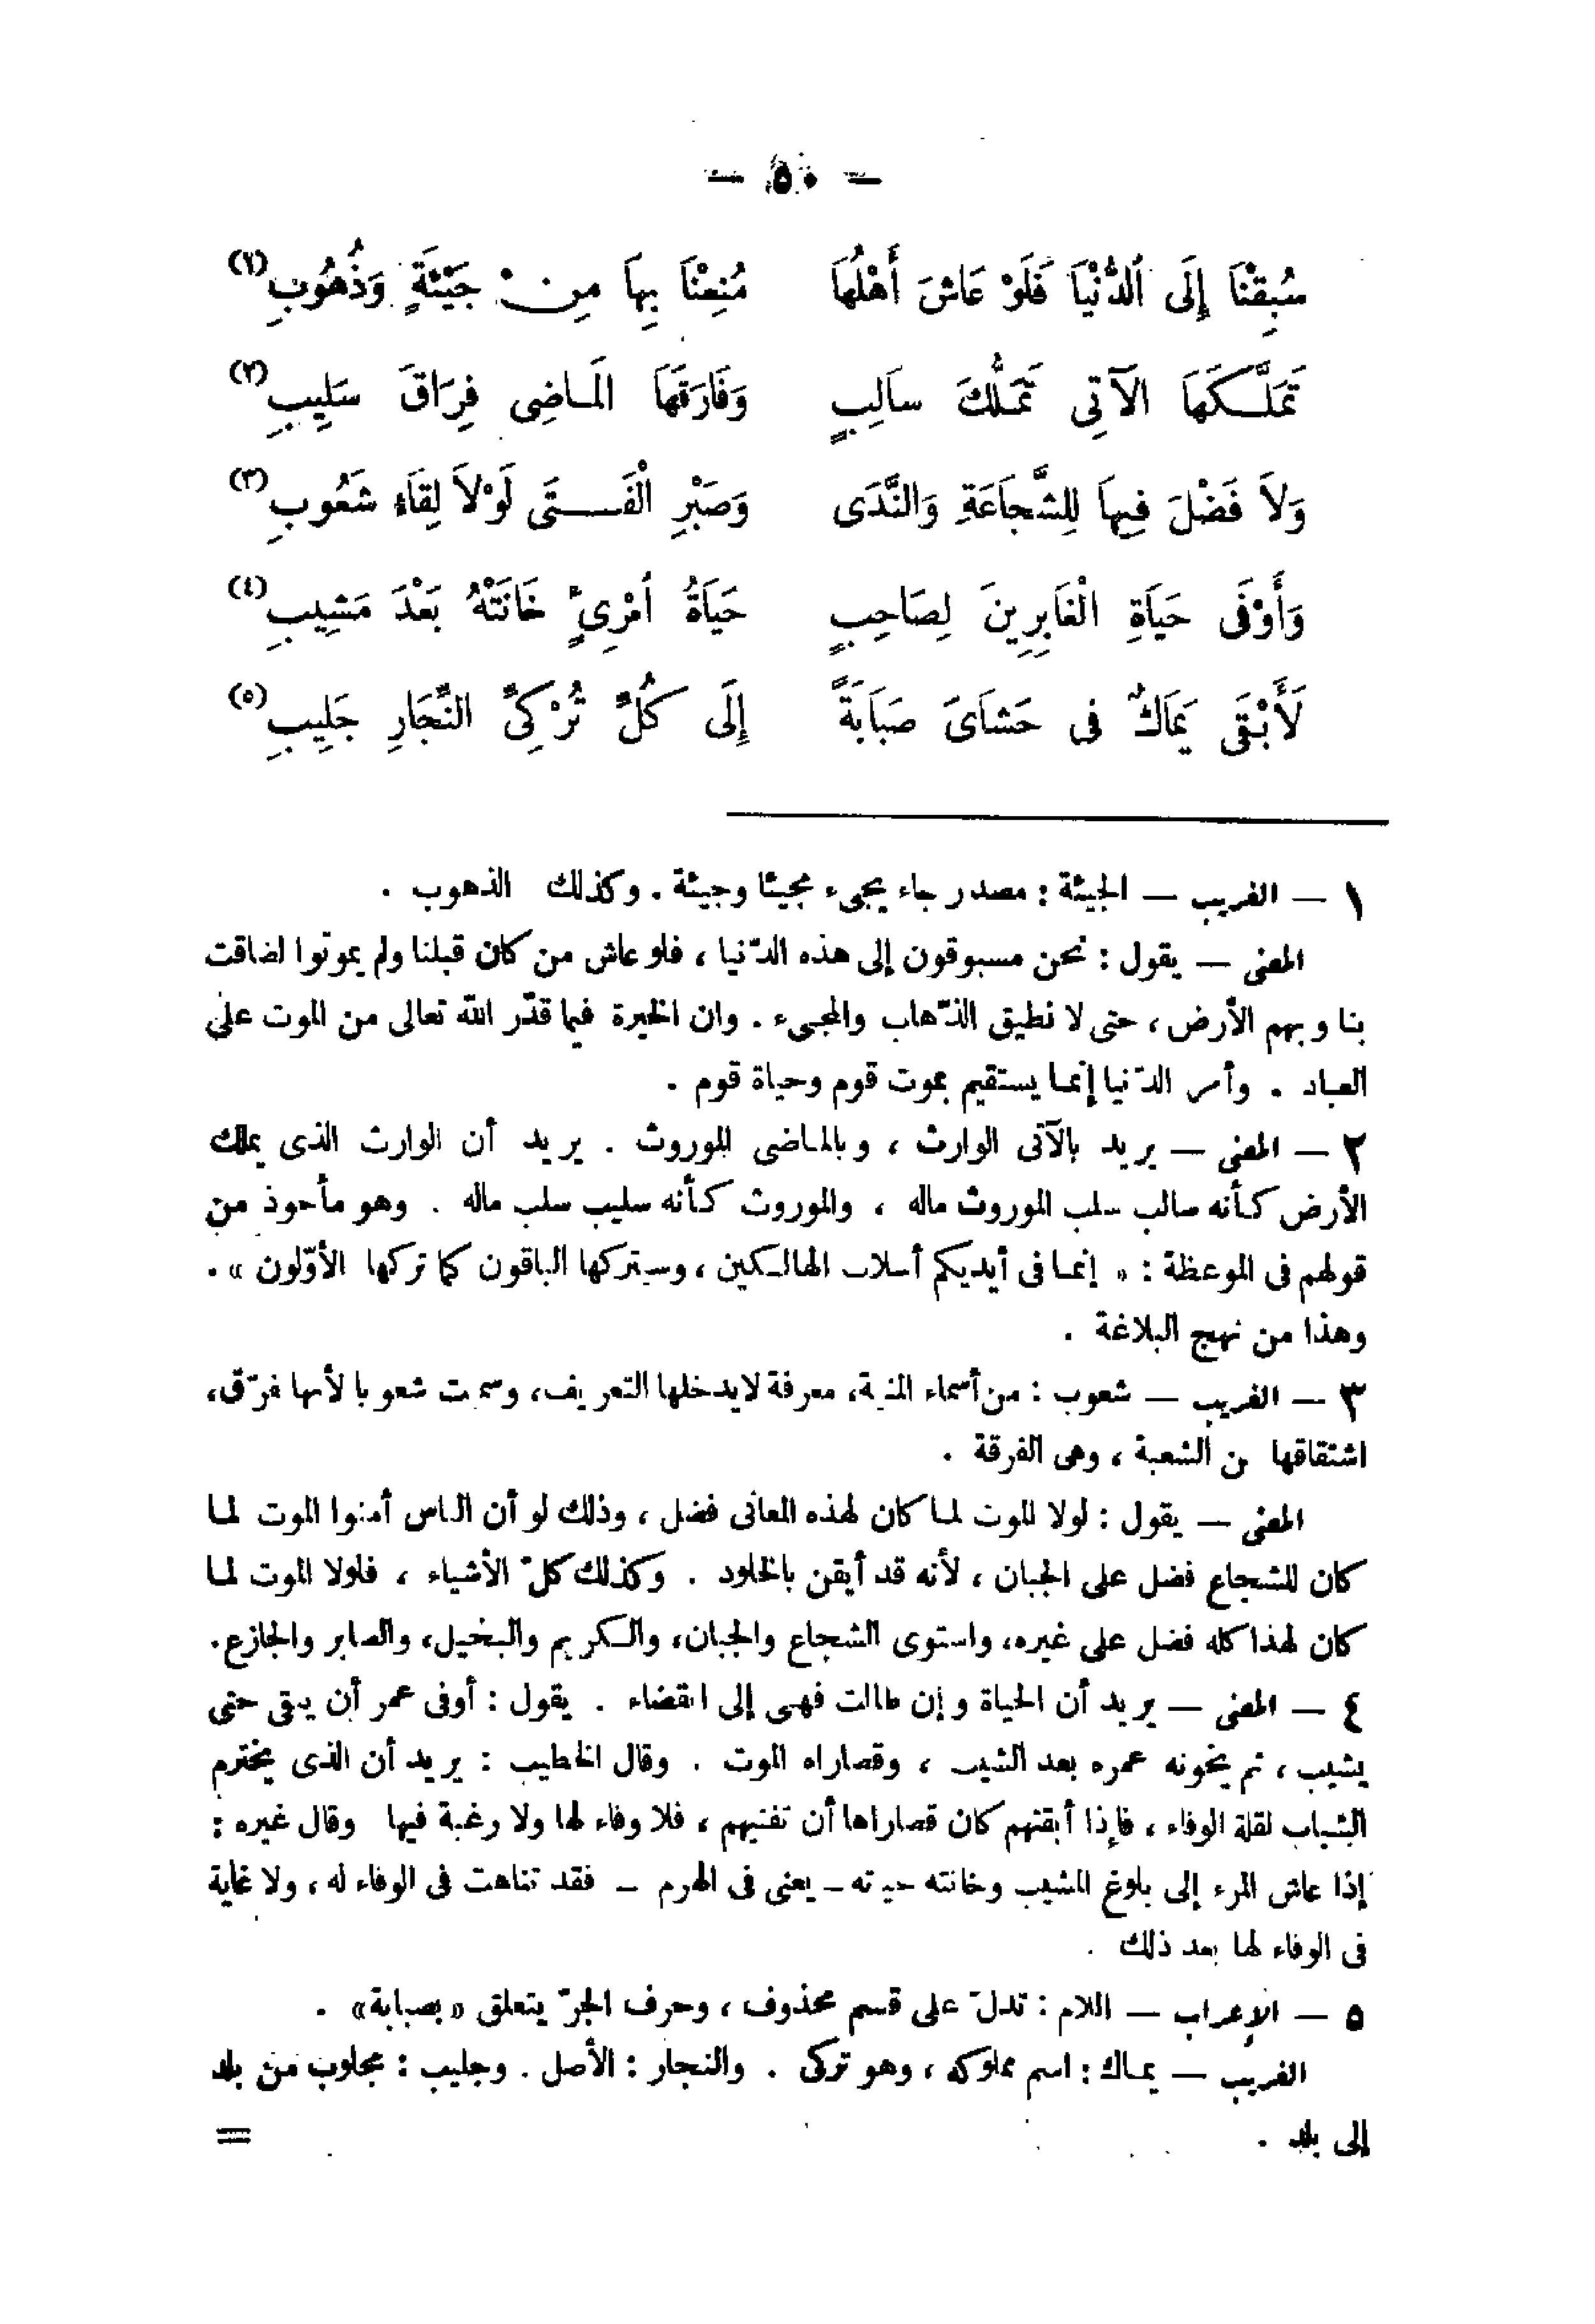 — ٥٠ —
سُبِقْنَا إِلَى الدُّنْيَا فَلَوْ عَاشَ أَهْلُهَا مُنِعْنَا بِهَا مِنْ جَيْئَةٍ وَذُهُوبِ (١)
تَمَلَّكَهَا الْآتِى تَمَلُّكَ سَالِبٍ وَفَارَقَهَا الْمَاضِى فِرَاقَ سَلِيبِ (٢)
وَلَا فَضْلَ فِيهَا لِلشَّجَاعَةِ وَالنَّدَى وَصَبْرِ الْفَتَى لَوْلَا لِقَاءِ شَعُوبِ (٣)
وَأَوْفَى حَيَاةِ الْغَابِرِينَ لِصَاحِبٍ حَيَاةُ امْرِئٍ خَانَتْهُ بَعْدَ مَشِيبِ (٤)
لَأَبْقَى يَمَاكٌ فِى حَشَاىَ صَبَابَةً إِلَى كُلِّ تُرْكِىِّ النِّجَارِ جَلِيبِ (٥)
١ — الغريب — الجيئة : مصدر جاء يجىء مجيئا وجيئة . وكذلك الذهوب .
المعنى — يقول : نحن مسبوقون إلى هذه الدّنيا ، فلو عاش من كان قبلنا ولم يموتوا لضاقت
بنا وبهم الأرض ، حتى لا نطيق الذّهاب والمجىء . وان الخيرة فيما قدّر الله تعالى من الموت على
العباد . وأمر الدّنيا إنما يستقيم بموت قوم وحياة قوم .
٢ — المعنى — يريد بالآتى الوارث ، وبالماضى الموروث . يريد أن الوارث الذى يملك
الأرض كأنه سالب سلب الموروث ماله ، والموروث كأنه سليب سلب ماله . وهو مأخوذ من
قولهم فى الموعظة : « إنما فى أيديكم أسلاب الهالكين ، وسيتركها الباقون كما تركها الأوّلون » .
وهذا من نهج البلاغة .
٣ — الغريب — شعوب : من أسماء المنية، معرفة لايدخلها التعريف، وسميت شعوبا لأنها تفرّق،
اشتقاقها من الشعبة ، وهى الفرقة .
المعنى — يقول : لولا الموت لما كان لهذه المعانى فضل ، وذلك لو أن الناس أمنوا الموت لما
كان للشجاع فضل على الجبان ، لأنه قد أيقن بالخلود . وكذلك كلّ الأشياء ، فلولا الموت لما
كان لهذا كله فضل على غيره، واستوى الشجاع والجبان، والكريم والبخيل، والصابر والجازع.
٤ — المعنى — يريد أن الحياة وإن طالت فهى إلى انقضاء . يقول : أوفى عمر أن يبقى حتى
يشيب ، ثم يخونه عمره بعد الشيب ، وقصاراه الموت . وقال الخطيب : يريد أن الذى يخترم
الشباب لقلة الوفاء ، فإذا أبقتهم كان قصاراها أن تفنيهم ، فلا وفاء لها ولا رغبة فيها وقال غيره :
إذا عاش المرء إلى بلوغ المشيب وخانته حياته - يعنى فى الهرم - فقد تناهت فى الوفاء له ، ولا غاية
فى الوفاء لها بعد ذلك .
٥ — الإعراب — اللام : تدلّ على قسم محذوف ، وحرف الجرّ يتعلق «بصبابة» .
الغريب — يماك : اسم مملوكه ، وهو تركى . والنجار : الأصل . وجليب : مجلوب من بلد
إلى بلد . =